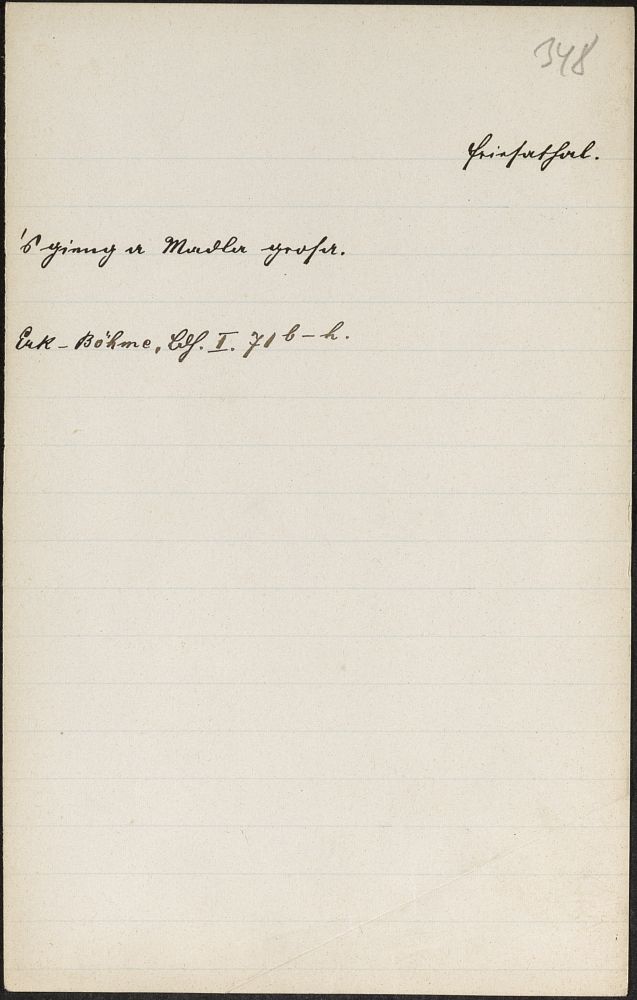 348
Friesathal.
's gieng a Madla grosa.
Erk-Böhme, Ldh. I. 71 b–h.